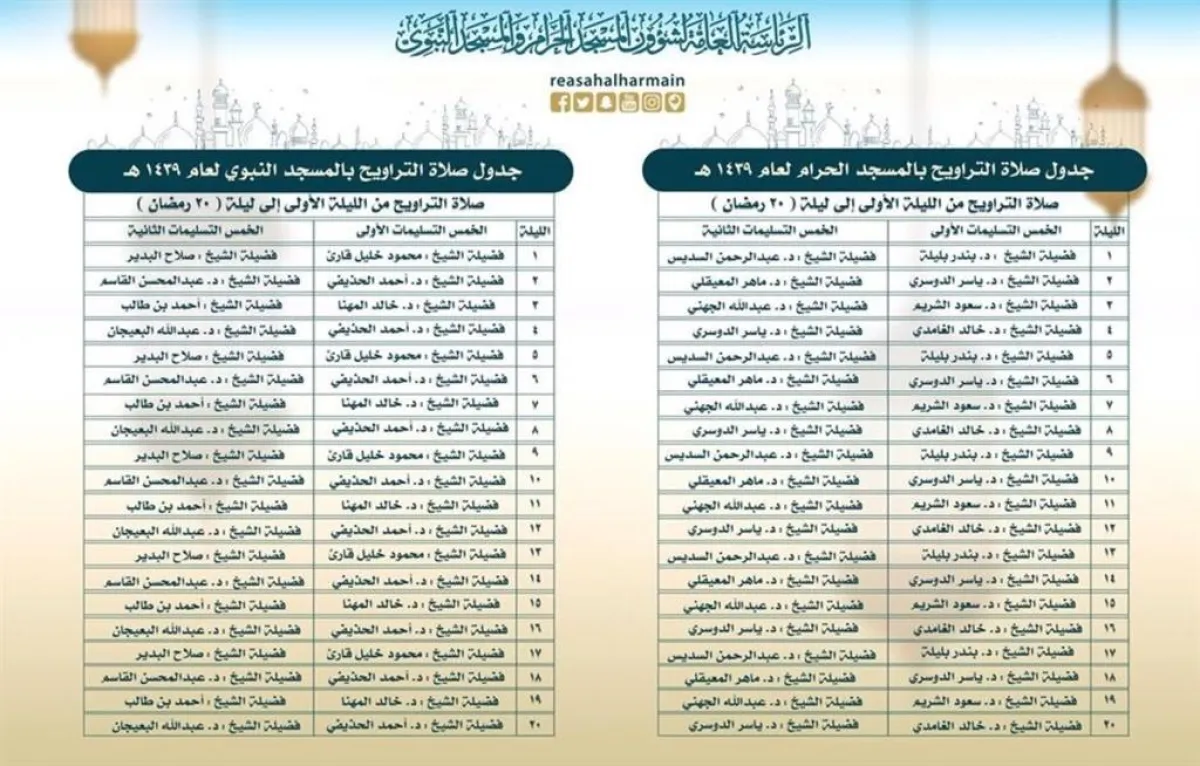 الرئاسة العامة لشؤون المسجد الحرام والمسجد النبوي
reasahalharmain
جدول صلاة التراويح بالمسجد الحرام لعام ١٤٣٩ هـ
صلاة التراويح من الليلة الأولى إلى ليلة ( ٢٠ رمضان )
الليلة الخمس التسليمات الأولى الخمس التسليمات الثانية
١ فضيلة الشيخ : د. بندر بليلة فضيلة الشيخ : د. عبدالرحمن السديس
٢ فضيلة الشيخ : د. ياسر الدوسري فضيلة الشيخ : د. ماهر المعيقلي
٣ فضيلة الشيخ : د. سعود الشريم فضيلة الشيخ : د. عبدالله الجهني
٤ فضيلة الشيخ : د. خالد الغامدي فضيلة الشيخ : د. ياسر الدوسري
٥ فضيلة الشيخ : د. بندر بليلة فضيلة الشيخ : د. عبدالرحمن السديس
٦ فضيلة الشيخ : د. ياسر الدوسري فضيلة الشيخ : د. ماهر المعيقلي
٧ فضيلة الشيخ : د. سعود الشريم فضيلة الشيخ : د. عبدالله الجهني
٨ فضيلة الشيخ : د. خالد الغامدي فضيلة الشيخ : د. ياسر الدوسري
٩ فضيلة الشيخ : د. بندر بليلة فضيلة الشيخ : د. عبدالرحمن السديس
١٠ فضيلة الشيخ : د. ياسر الدوسري فضيلة الشيخ : د. ماهر المعيقلي
١١ فضيلة الشيخ : د. سعود الشريم فضيلة الشيخ : د. عبدالله الجهني
١٢ فضيلة الشيخ : د. خالد الغامدي فضيلة الشيخ : د. ياسر الدوسري
١٣ فضيلة الشيخ : د. بندر بليلة فضيلة الشيخ : د. عبدالرحمن السديس
١٤ فضيلة الشيخ : د. ياسر الدوسري فضيلة الشيخ : د. ماهر المعيقلي
١٥ فضيلة الشيخ : د. سعود الشريم فضيلة الشيخ : د. عبدالله الجهني
١٦ فضيلة الشيخ : د. خالد الغامدي فضيلة الشيخ : د. ياسر الدوسري
١٧ فضيلة الشيخ : د. بندر بليلة فضيلة الشيخ : د. عبدالرحمن السديس
١٨ فضيلة الشيخ : د. ياسر الدوسري فضيلة الشيخ : د. ماهر المعيقلي
١٩ فضيلة الشيخ : د. سعود الشريم فضيلة الشيخ : د. عبدالله الجهني
٢٠ فضيلة الشيخ : د. خالد الغامدي فضيلة الشيخ : د. ياسر الدوسري
جدول صلاة التراويح بالمسجد النبوي لعام ١٤٣٩ هـ
صلاة التراويح من الليلة الأولى إلى ليلة ( ٢٠ رمضان )
الليلة الخمس التسليمات الأولى الخمس التسليمات الثانية
١ فضيلة الشيخ : محمود خليل قارئ فضيلة الشيخ : صلاح البدير
٢ فضيلة الشيخ : د. أحمد الحذيفي فضيلة الشيخ : د. عبدالمحسن القاسم
٣ فضيلة الشيخ : د. خالد المهنا فضيلة الشيخ : أحمد بن طالب
٤ فضيلة الشيخ : د. أحمد الحذيفي فضيلة الشيخ : د. عبدالله البعيجان
٥ فضيلة الشيخ : محمود خليل قارئ فضيلة الشيخ : صلاح البدير
٦ فضيلة الشيخ : د. أحمد الحذيفي فضيلة الشيخ : د. عبدالمحسن القاسم
٧ فضيلة الشيخ : د. خالد المهنا فضيلة الشيخ : أحمد بن طالب
٨ فضيلة الشيخ : د. أحمد الحذيفي فضيلة الشيخ : د. عبدالله البعيجان
٩ فضيلة الشيخ : محمود خليل قارئ فضيلة الشيخ : صلاح البدير
١٠ فضيلة الشيخ : د. أحمد الحذيفي فضيلة الشيخ : د. عبدالمحسن القاسم
١١ فضيلة الشيخ : د. خالد المهنا فضيلة الشيخ : أحمد بن طالب
١٢ فضيلة الشيخ : د. أحمد الحذيفي فضيلة الشيخ : د. عبدالله البعيجان
١٣ فضيلة الشيخ : محمود خليل قارئ فضيلة الشيخ : صلاح البدير
١٤ فضيلة الشيخ : د. أحمد الحذيفي فضيلة الشيخ : د. عبدالمحسن القاسم
١٥ فضيلة الشيخ : د. خالد المهنا فضيلة الشيخ : أحمد بن طالب
١٦ فضيلة الشيخ : د. أحمد الحذيفي فضيلة الشيخ : د. عبدالله البعيجان
١٧ فضيلة الشيخ : محمود خليل قارئ فضيلة الشيخ : صلاح البدير
١٨ فضيلة الشيخ : د. أحمد الحذيفي فضيلة الشيخ : د. عبدالمحسن القاسم
١٩ فضيلة الشيخ : د. خالد المهنا فضيلة الشيخ : أحمد بن طالب
٢٠ فضيلة الشيخ : د. أحمد الحذيفي فضيلة الشيخ : د. عبدالله البعيجان